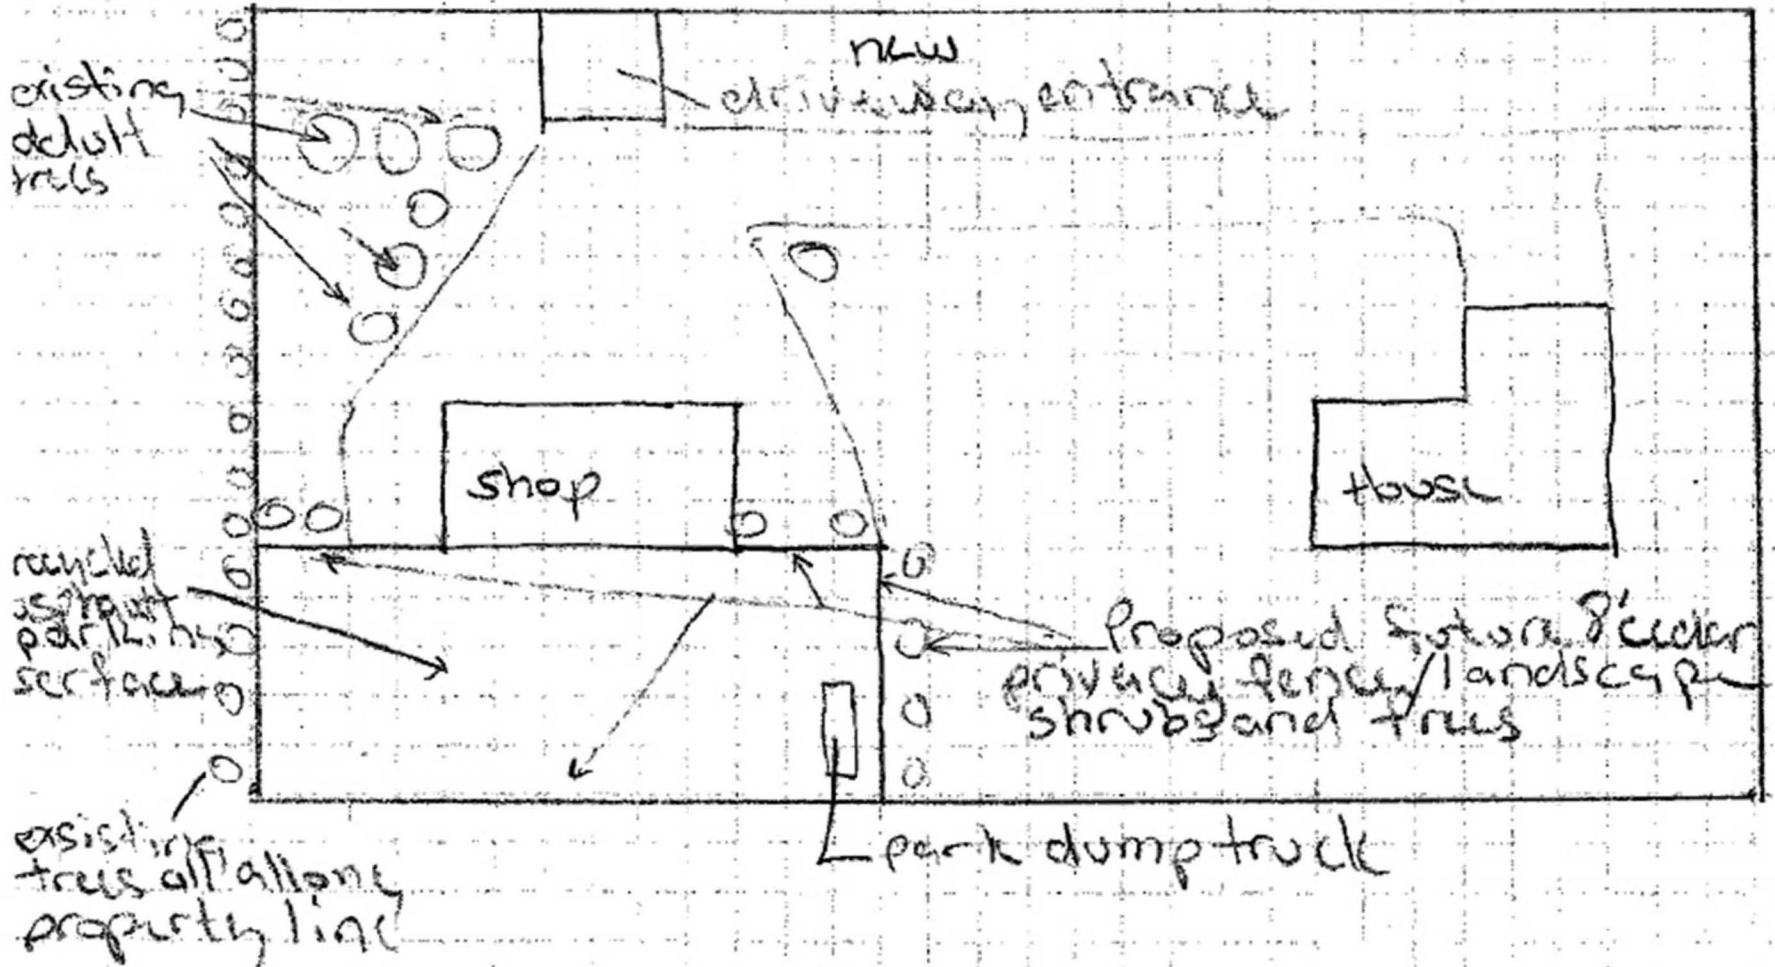 new
driveway entrance
existing
adult
trees
shop
House
recycled
asphalt
parking
surface
Proposed future 8' ceder
privacy fence/landscape
shrubs and trees
park dump truck
exsisting
trees all allong
property line